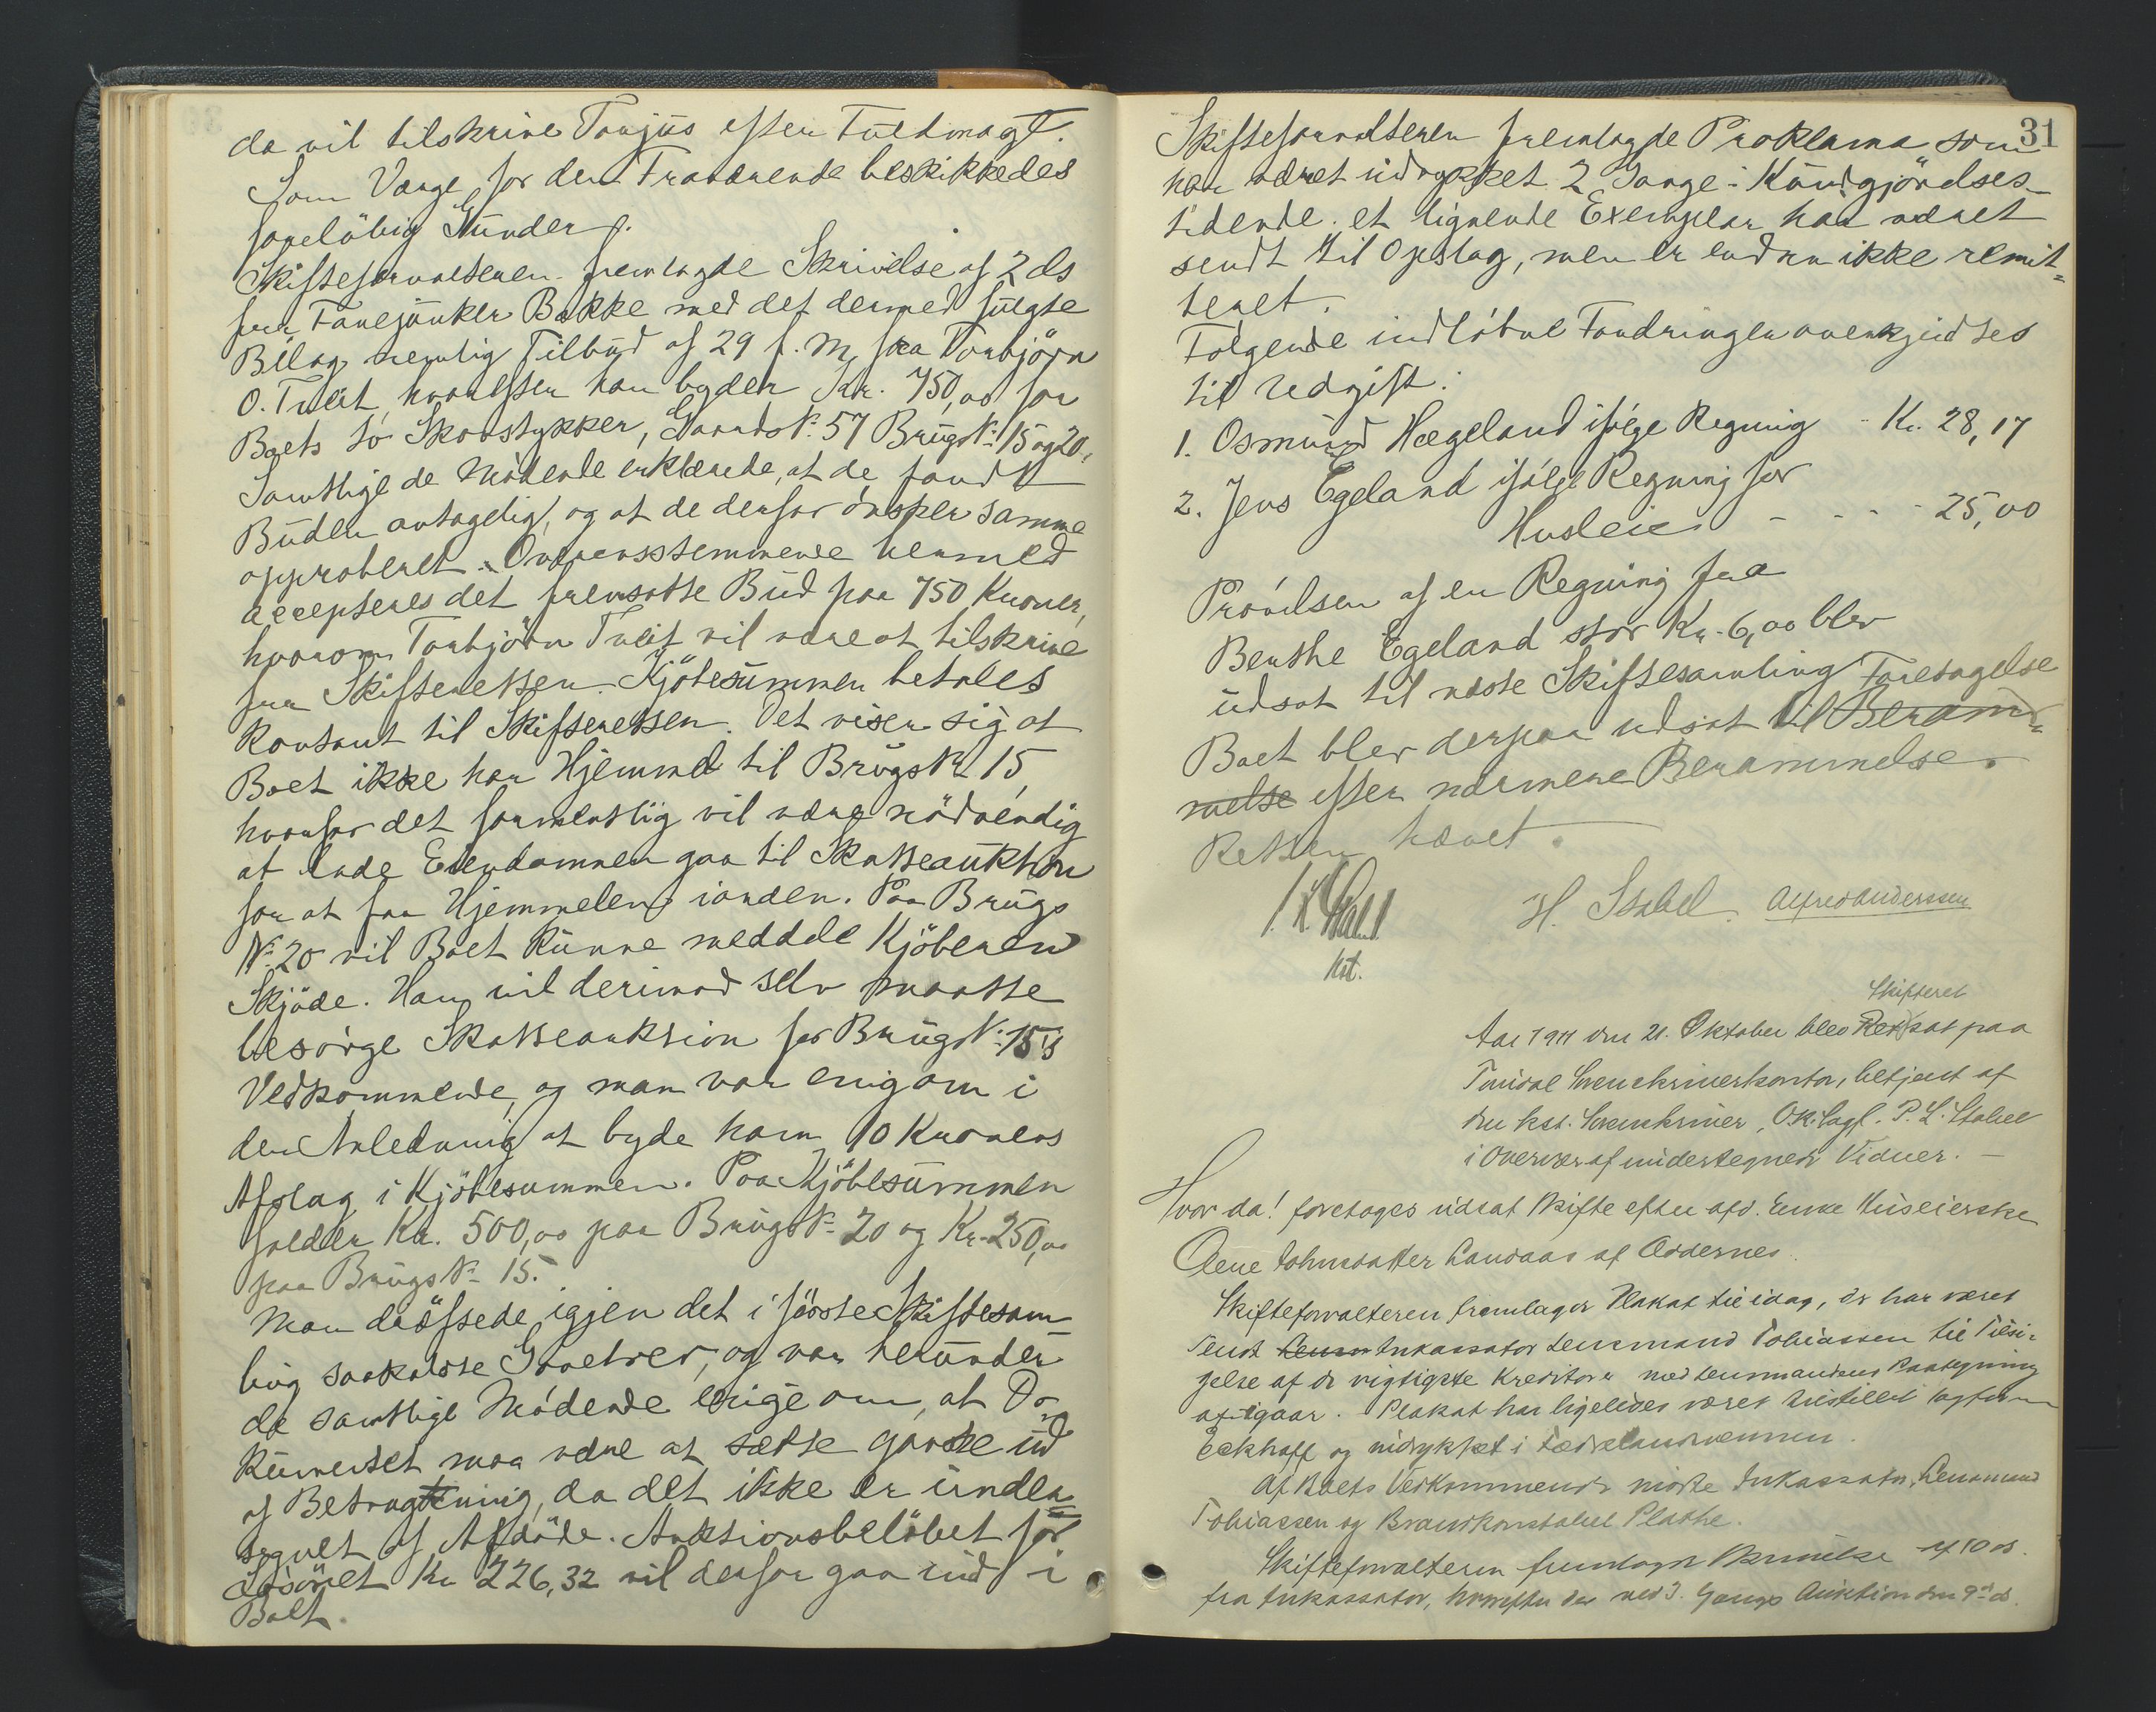 da vil tilskrive Tarjus efter Fuldmagt.
Som Værge for den Fraværende beskikkedes
foreløbig Gunder .
Skifteforvalteren fremlagde Skrivelse af 2 ds
fra Fanejunker Bakke med det dermed fulgte
Bilag nemlig Tilbud af 29 f. M. fra Torbjörn
O. Tveit, hvorefter han byder Kr. 750,00 for
Boets to Skovstykker, Gaards No. 57 Brugs No. 15 og 20.
Samtlige de Mødende erklærede, at de fandt
Buden antagelig, og at de derfor ønsker samme
approberet. Overensstemmende hermed
accepteres det fremsatte Bud paa 750 Kroner,
hvorom Torbjörn Tveit vil være at tilskrive
fra Skifteretten. Kjöbesummen betales
kontant til Skifteretten. Det viser sig at
Boet ikke har Hjemmel til Brugs No. 15,
hvorfor det formentlig vil være nödvendig
at lade Eiendommen gaa til Skatteauktion
for at faa Hjemmelen i orden. Paa Brugs
No. 20 vil Boet kunne meddele Kjöberen
Skjöde. Han vil derimod selv maatte
besørge Skatteauktion for Brugs No. 15's
Vedkommende, og man var enig om i
den Anledning at byde ham 10 Kroners
Afslag i Kjöbesummen. Paa Kjöbesummen
falder Kr. 500,00 paa Brugs No. 20 og Kr. 250,00
paa Brugs No. 15.
Man dröftede igjen det i förste Skiftesam-
ling saakaldte Gavebrev, og var herunder
de samtlige Mødende enige om, at Do-
kumentet maa være at sætte ganske ud
af Betragtning, da det ikke er under-
tegnet af Afdöde. Auktionsbelöbet for
Lösöret Kr. 226,32 vil derfor gaa ind i
Boet.
31
Skifteforvalteren fremlagde Proklama som
har været indrykket 2 Gange i Kundgjörelses-
tidende. et lignende Exemplar har været
sendt til Opslag, men er endnu ikke remit-
teret.
Følgende indløbne Fordringer anerkjendtes
til Udgift:
1. Osmund Hægeland ifølge Regning - Kr. 28,17
2. Jens Egeland ifølge Regning for
Husleie - - - - 25,00
Prøvelsen af en Regning fra
Benthe Egeland stor Kr. 6,00 blev
udsat til næste Skiftesamling
Foretagelse
Boet blev derpaa udsat til Beram-
melse efter nærmere Berammelse.
Retten hævet.
H. Stabel. Alfred Anderssen
kst.
Skifteret
Aar 1911 den 21. Oktober blev Ret sat paa
Sorenskriverkontor, betjent af
den kst. Sorenskriver, O.R.Sagf. P. L. Stabel
i Overvær af undertegnede Vidner. -
Hvor da! foretages udsat Skifte efter afd. Enke Huseierske
Aene Johnsdatter Landaas af Oddernes.
Skifteforvalteren fremlagde Plakat til idag, der har været
sendt Lensm Inkassator Lensmand Tobiassen til Tilsi-
gelse af de vigtigste Kreditorer med Lensmandens Paategning
af igaar. Plakat har ligeledes været tilstillet Sagfører
Eckhoff og indrykket i Fædrelandsvennen.
Af Boets Vedkommende mødte Inkassator, Lensmand
Tobiassen og Brandkonstabel Plathe.
Skifteforvalteren fremlagde Skrivelse af 10 ds.
fra Inkassator, hvorefter der ved 3. Gangs Auktion den 9de ds.